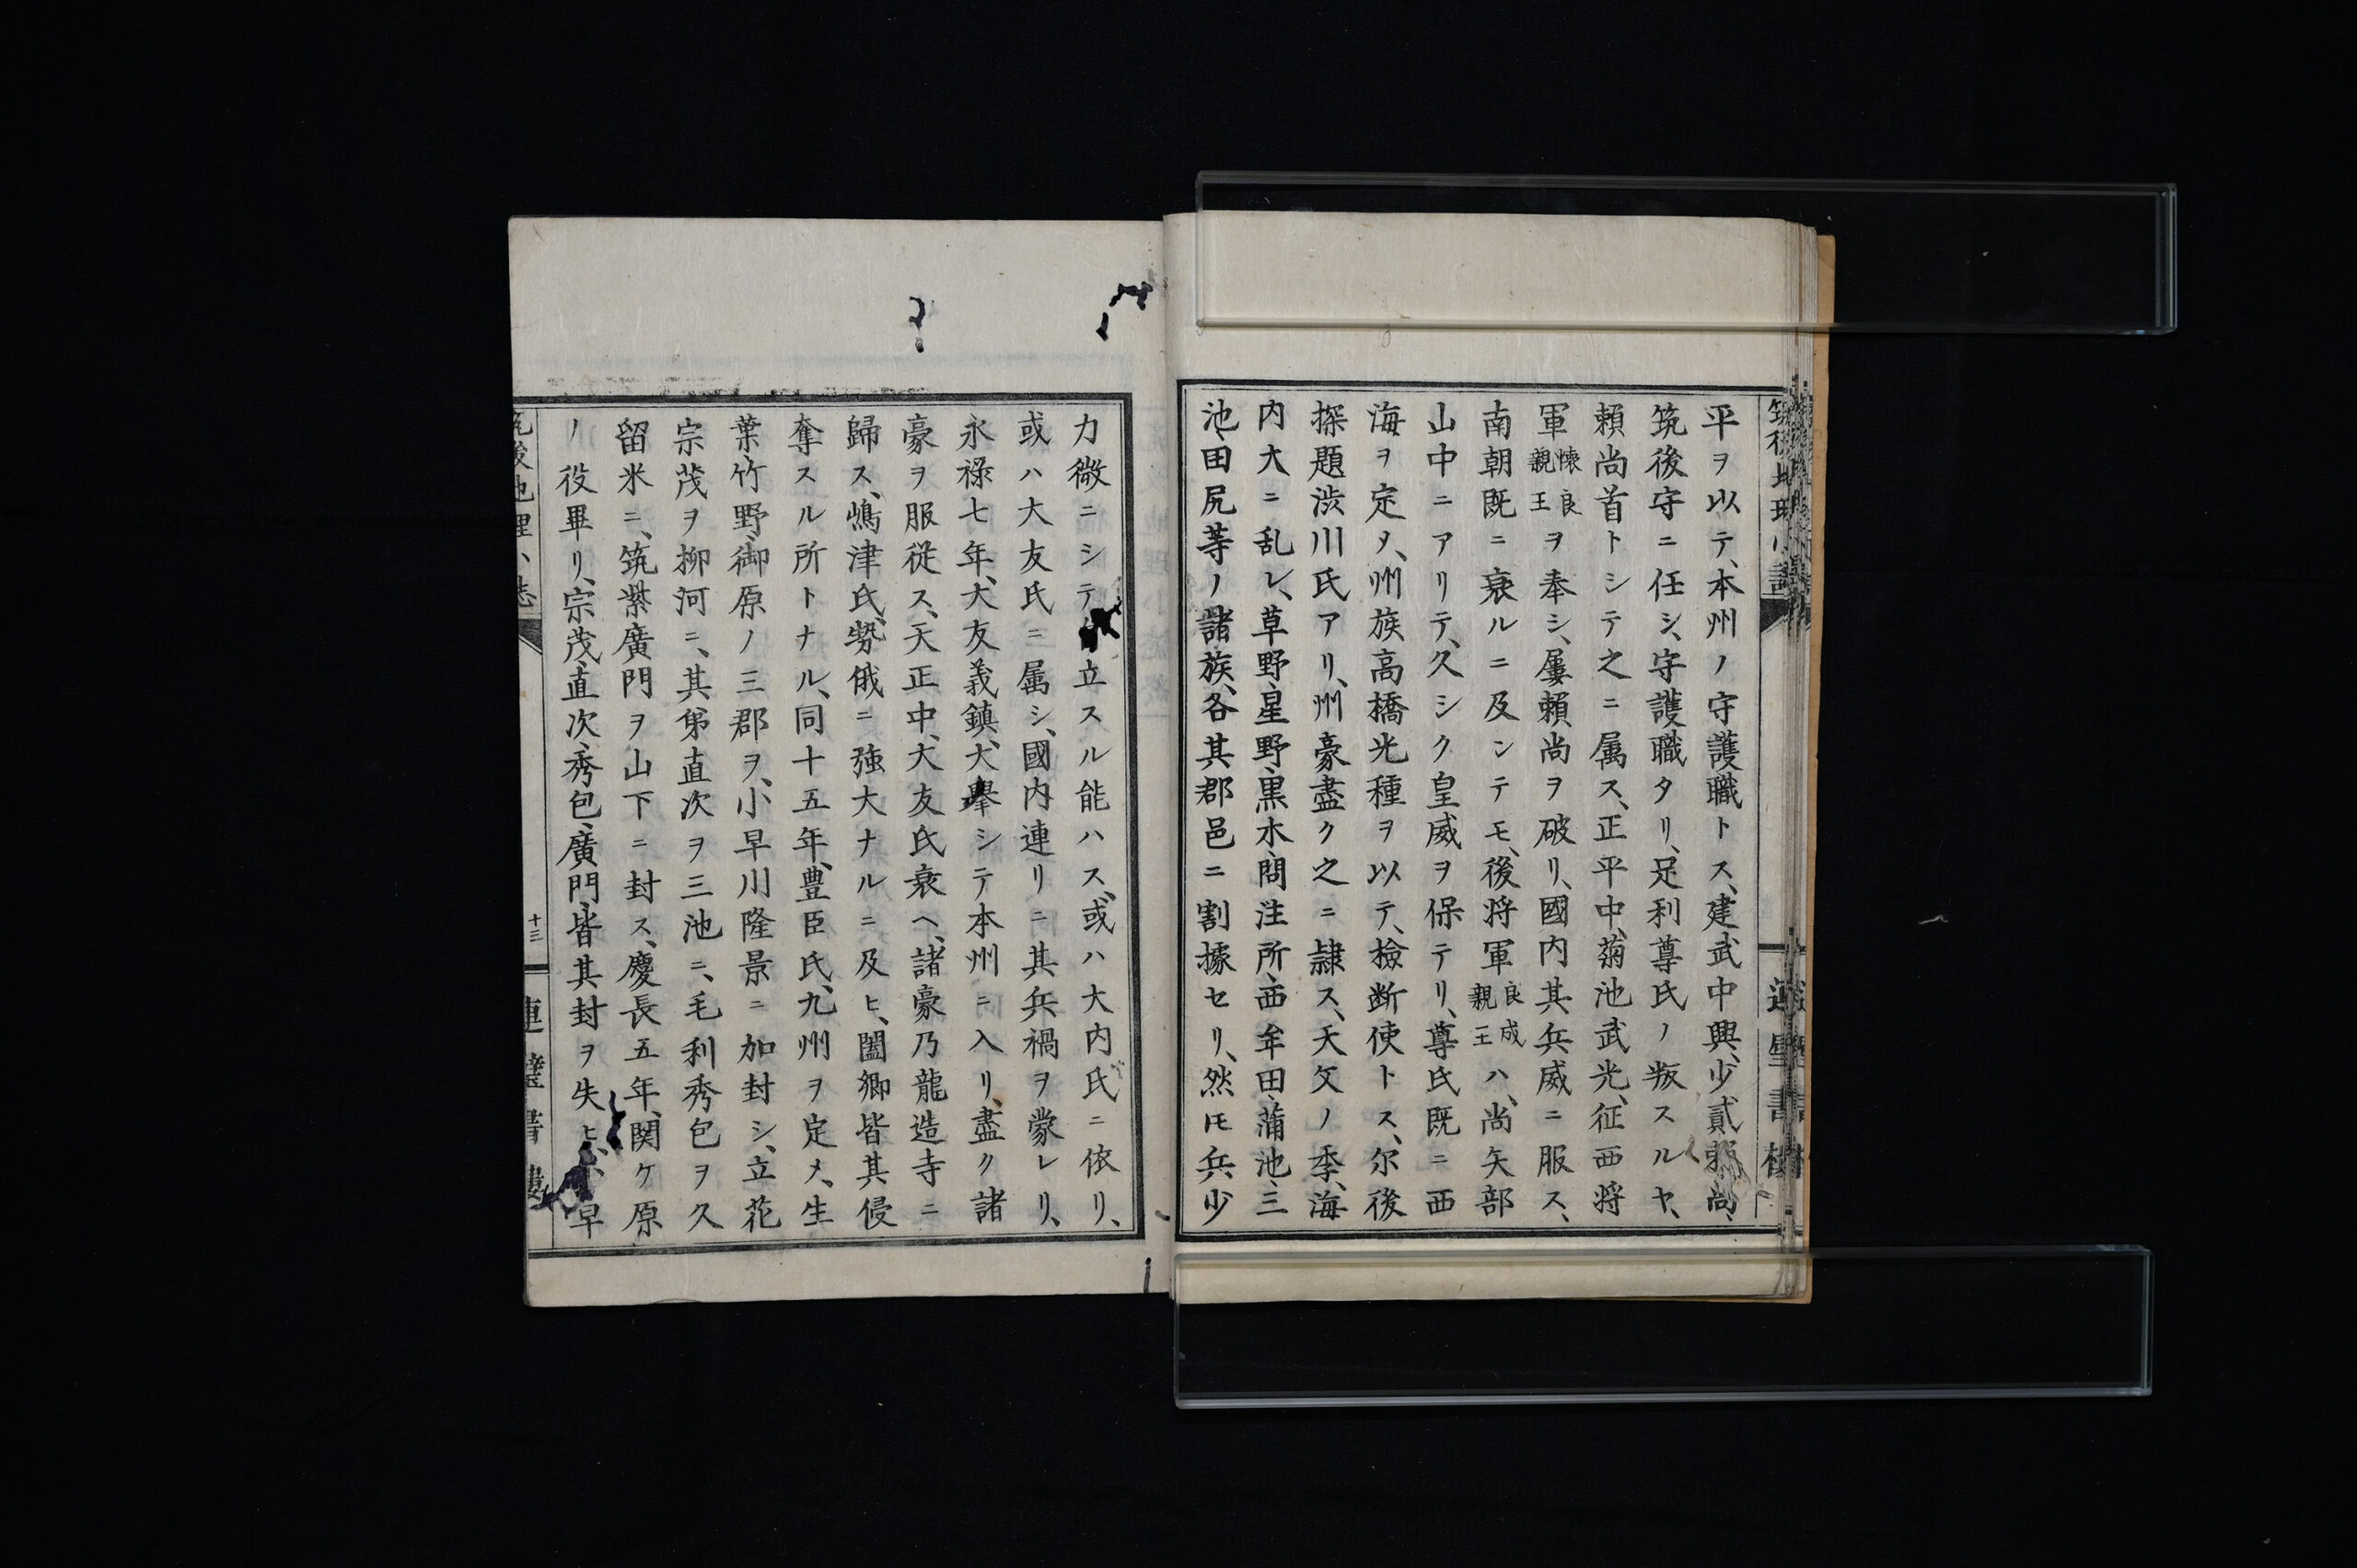 平ヲ以テ、本州ノ守護職トス、建武中興、少貳頼尚、
筑後守ニ任シ、守護職タリ、足利尊氏ノ叛スルヤ、
頼尚首トシテ之ニ属ス、正平中、菊池武光、征西将
軍懐良親王ヲ奉シ、屢頼尚ヲ破リ、國内其兵威ニ服ス、
南朝既ニ衰ルニ及ンテモ、後将軍良成親王ハ、尚矢部
山中ニアリテ、久シク皇威ヲ保テリ、尊氏既ニ西
海ヲ定メ、州族高橋光種ヲ以テ、檢断使トス、尓後
探題渋川氏アリ、州豪盡ク之ニ隷ス、天文ノ季、海
内大ニ乱レ、草野、星野、黒木、問注所、西牟田、蒲池、三
池、田尻等ノ諸族、各其郡邑ニ割據セリ、然𪜈兵少
力微ニシテ立スル能ハス、或ハ大内氏ニ依リ、
或ハ大友氏ニ属シ、國内連リニ其兵禍ヲ蒙レリ、
永禄七年、大友義鎮、大舉シテ本州ニ入リ、盡ク諸
豪ヲ服従ス、天正中、大友氏衰ヘ、諸豪乃龍造寺ニ
歸ス、嶋津氏、勢俄ニ強大ナルニ及ヒ、闔郷皆其侵
奪スル所トナル、同十五年、豊臣氏、九州ヲ定メ、生
葉、竹野、御原ノ三郡ヲ、小早川隆景ニ加封シ、立花
宗茂ヲ柳河ニ、其弟直次ヲ三池ニ、毛利秀包ヲ久
留米ニ、筑紫廣門ヲ山下ニ封ス、慶長五年、関ケ原
ノ役畢リ、宗茂、直次、秀包、廣門、皆其封ヲ失ヒ、早
筑後地理小誌
十三
連璧書樓